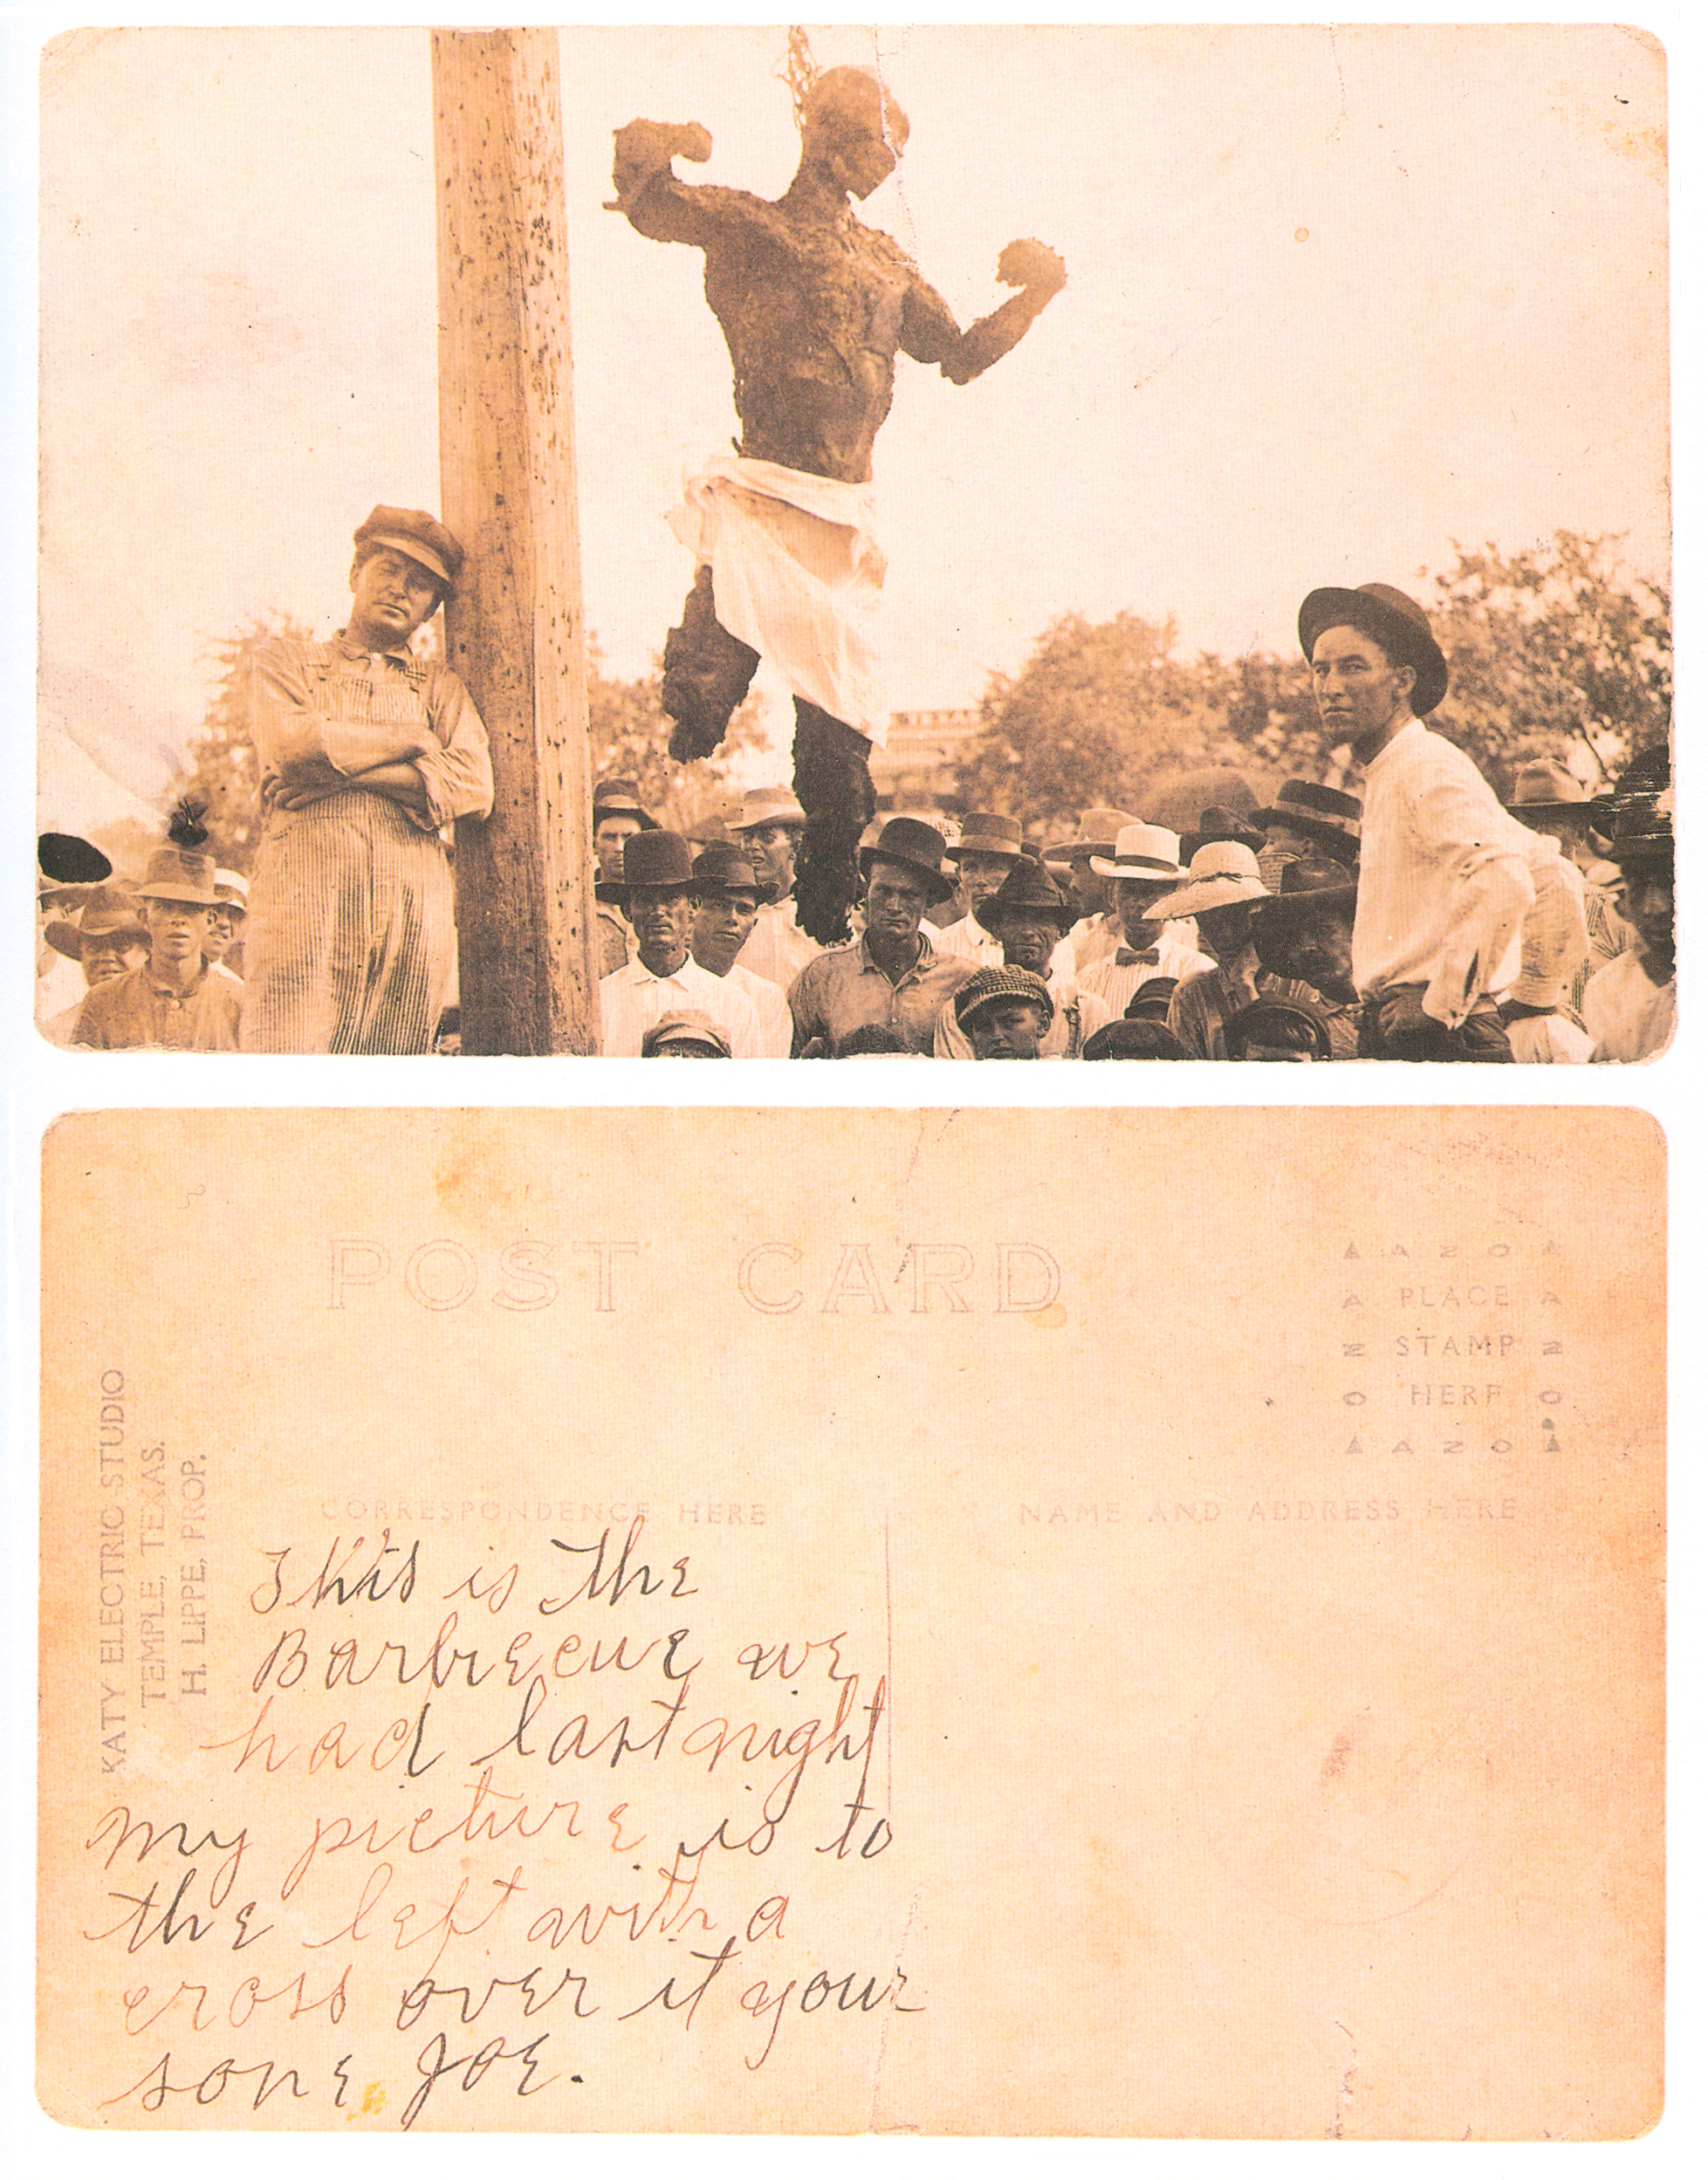 POST CARD
AAZOA
A PLACE A
Z STAMP Z
O HERE O
AAZOA
KATY ELECTRIC STUDIO
TEMPLE, TEXAS.
H. LIPPE, PROP.
CORRESPONDENCE HERE
NAME AND ADDRESS HERE
This is the
Barbecue we
had last night
My picture is to
the left with a
cross over it your
sone Joe.